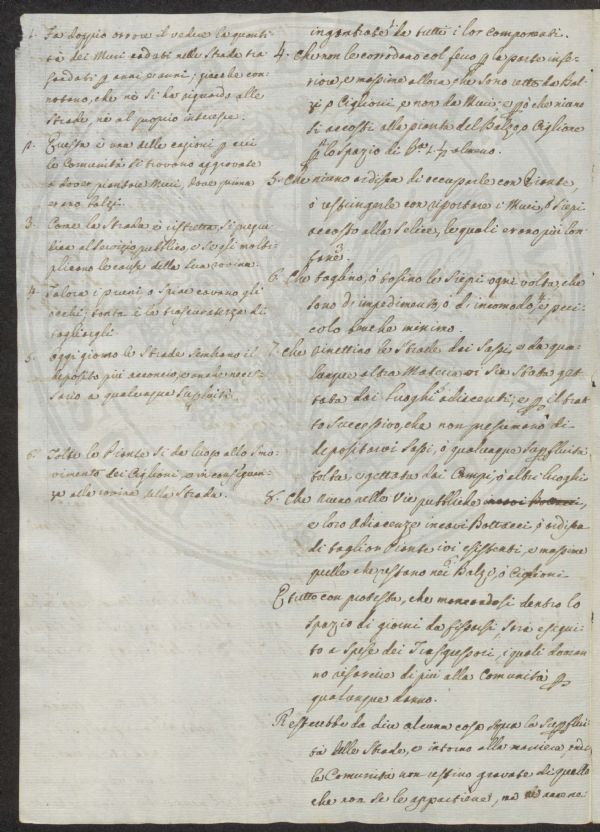 1. Fa doppio orrore il vedere la quanti-
tà dei Muri caduti nelle Strade tra-
scordati p anni e anni; giacche con-
notano, che nè si ha riguardo alle
Strade, nè al proprio interesse.
2. Questa è una delle cagioni p cui
le Comunità si trovono aggravate
a dover piantare Muri, dove prima
erano Balzi.
3. Come la Strada è ristretta, si pregiu-
dica al Servizio pubblico, e se gli molti-
plicano le cause della sua rovina.
4. Talora i pruni, o spine cavano gli
occhi; tanta è la trascuratezza di
tagliargli.
5. oggi giorno le Strade sembrano il
deposito più acconcio, e anche neces-
sario a qualunque Supfluità.
6. Tolte le Piante si da luogo allo Smo-
vimento dei Ciglioni, e in conseguen-
za alla rovina sulla Strada.
ingontrate da tutti i lor componenti.
4. Che non le corrodano col ferro p la parte infe-
riore, e massime allora che sono rette da Bal-
zi, o Ciglioni, e non da Muri; e p ciò che niuno
si accosti alla pianta del Balzo, o Ciglione
p lo spazio di Ba 1 1/2 almeno.
5. Che niuno ardisca di occuparle con Piante,
ò restringerle con riportare i Muri, ò Siepi
accosto alla Selice, le quali erano più lon-
tane.
6. Che taglino, ò tosino le Siepi ogni volta, che
sono d'impedimento, ò d'incomodo, e peri-
colo benche minimo.
7. Che rinettino le Strade dai Sassi, e da qua-
lunque altra Materia vi sia stata get-
tata dai luoghi adiacenti; e p il tratto
successivo, che non presumano di
depositarvi Sassi, ò qualunque Supfluità
tolta, e gettata dai Campi, ò altri luoghi
8. Che niuno nelle Vie pubbliche,
e loro Adiacenze incavi Bottacci, ò ardisca
di tagliar Piante ivi esistenti, e massime
quelle che restano nei Balzi, ò Ciglioni
E tutto con protesta, che mancandosi dentro lo
spazio di giorni da fissarsi, sarà esegui-
to a spese dei Trasgressori, i quali doran-
no risarcire di più alla Comunità p
qualunque danno.
Resterebbe da dire alcuna cosa sopra la Supflui-
tà delle Strade, e intorno alla maniera, onde
le Comunità non restino gravate di quello
che non se le appartiene, ma